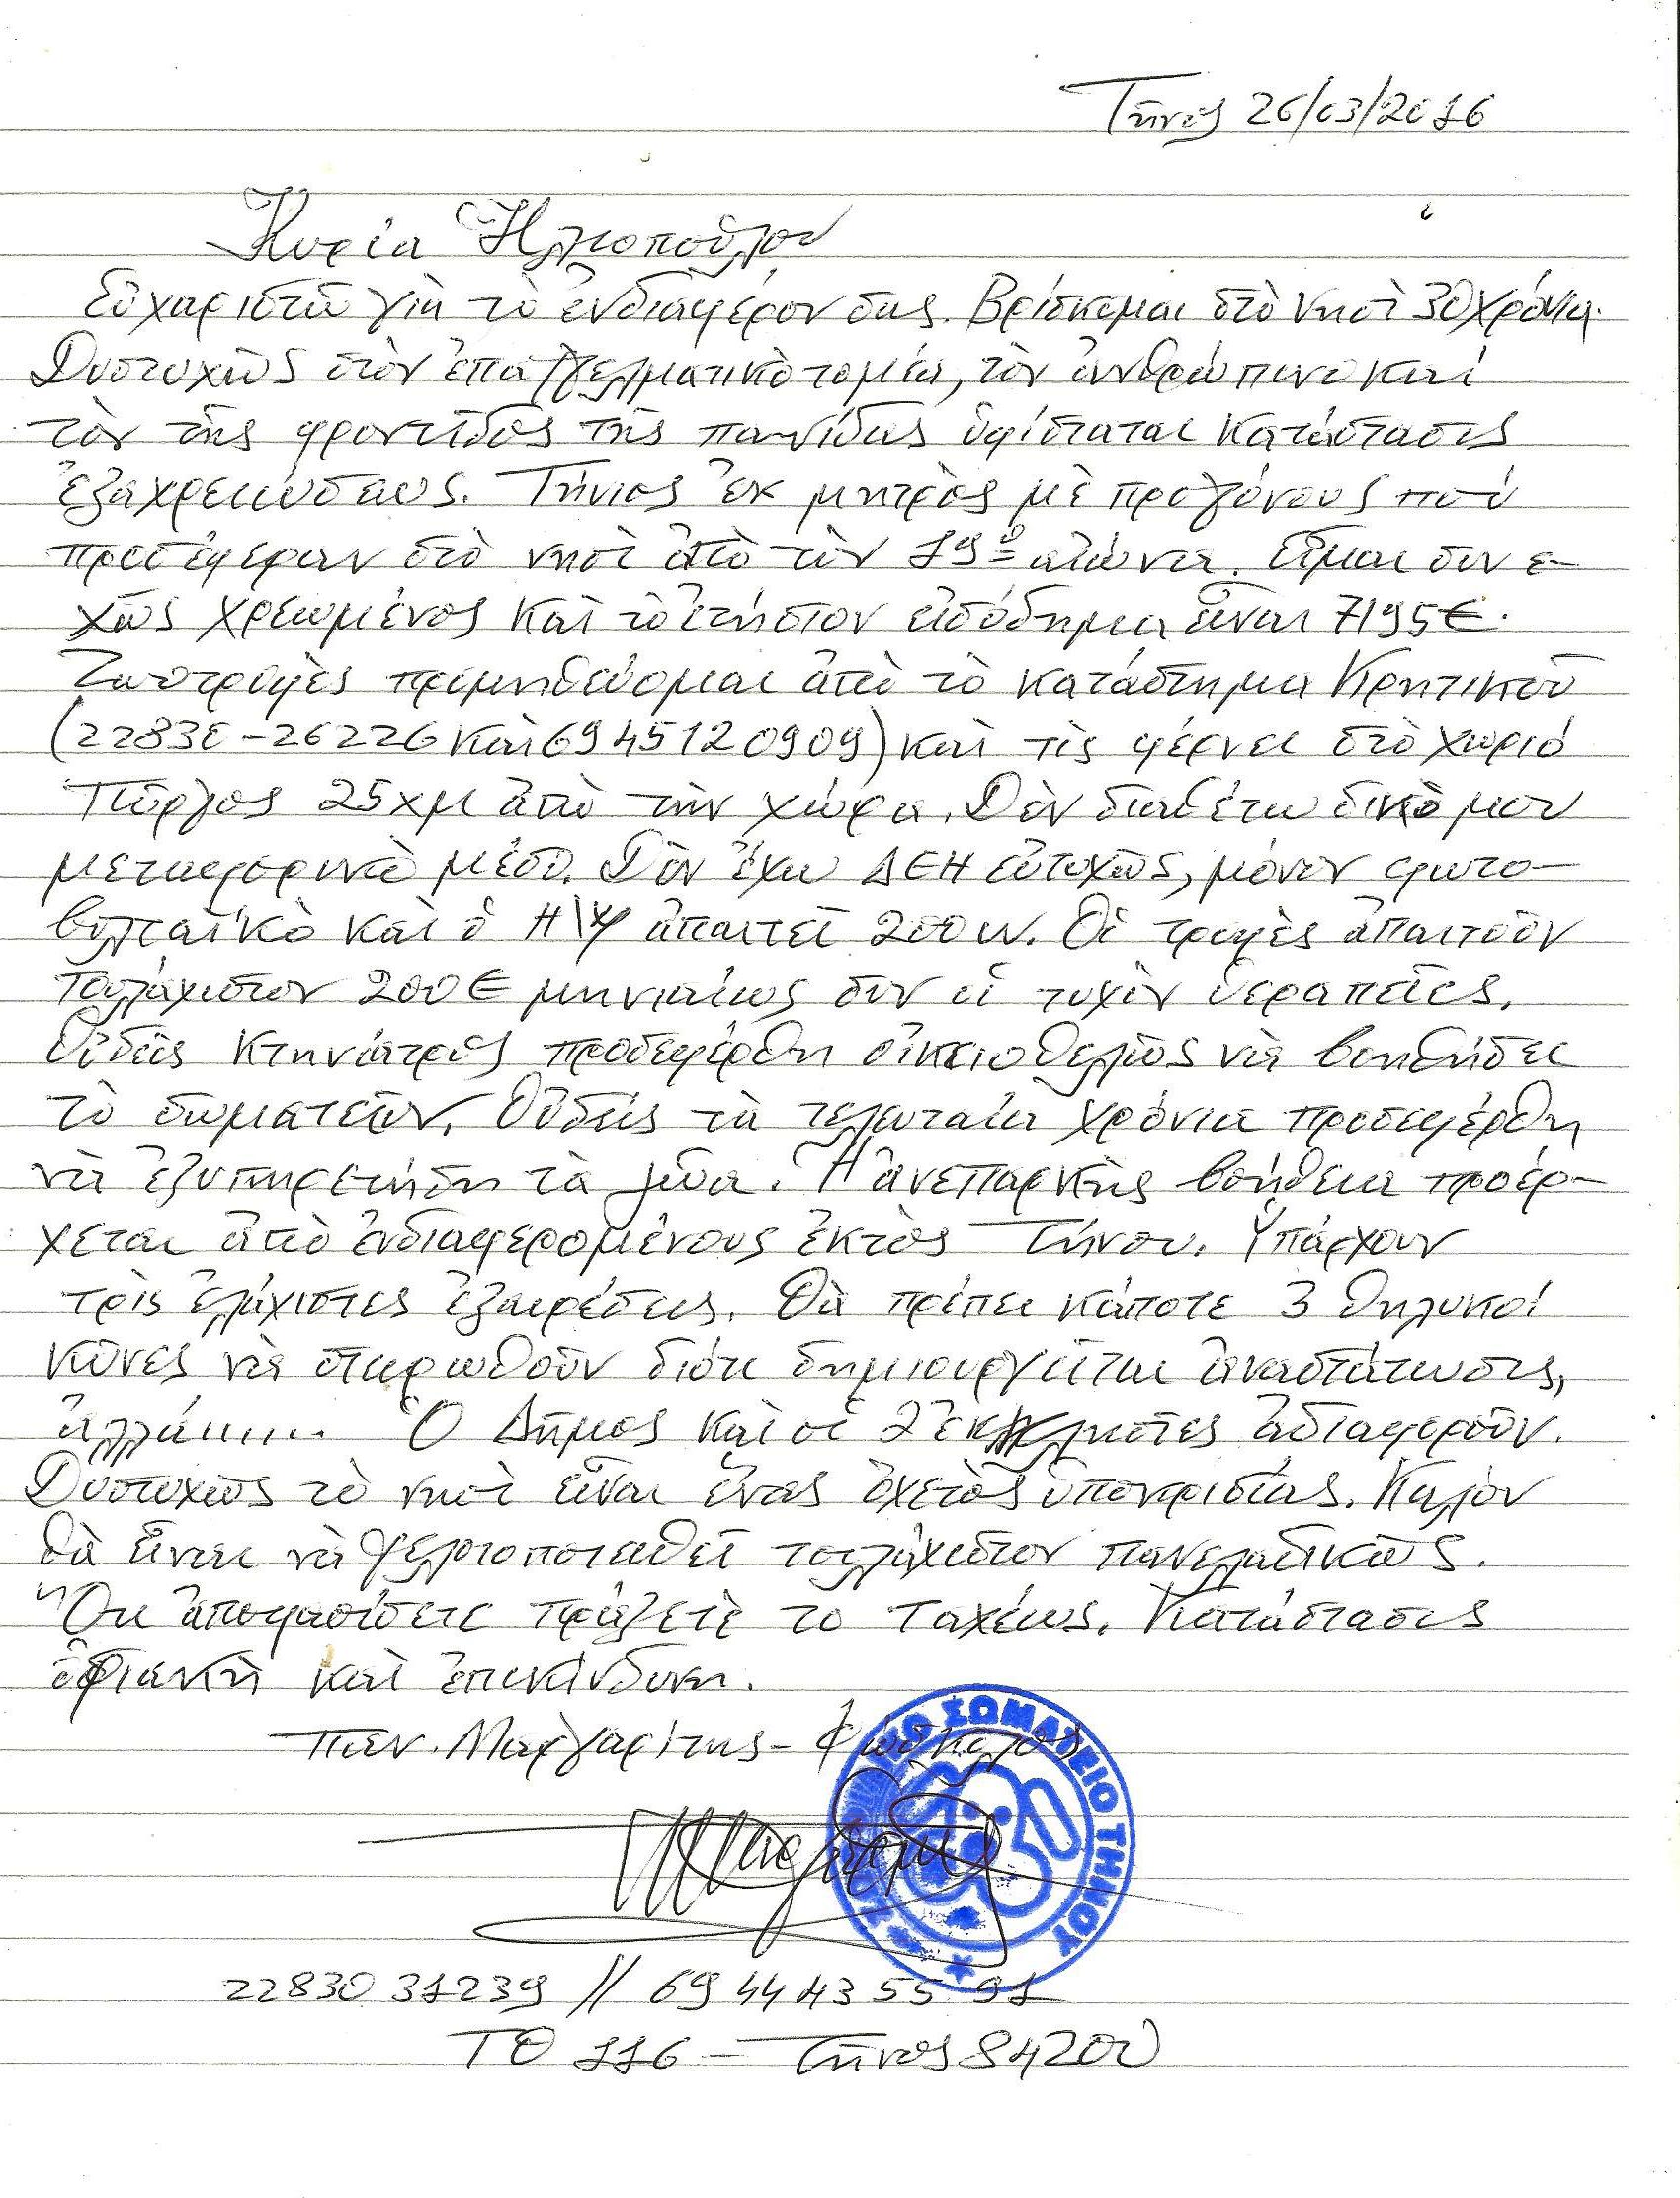 Τῆνος 26/03/2016
Κυρία Ἡλιοπούλου
Εὐχαριστῶ γιὰ τὸ ἐνδιαφέρον σας. Βρίσκομαι στὸ νησὶ 30 χρόνια.
Δυστυχῶς στὸν ἐπαγγελματικὸ τομέα, τὸν ἀνθρώπινο καὶ
τὸν τῆς φροντίδος τῆς πανίδας ὑφίσταται κατάστασις
ἐξαχρειώσεως. Τήνιος ἐκ μητρὸς μὲ προγόνους ποὺ
προσέφεραν στὸ νησὶ ἀπὸ τὸν 19ο αἰώνα. Εἶμαι συνε-
χῶς χρεωμένος καὶ τὸ ἐτήσιον εἰσόδημα εἶναι 7195€.
Ζωοτροφὲς προμηθεύομαι ἀπὸ τὸ κατάστημα Κρητικοῦ
(22830-26226 καὶ 6945120909) καὶ τὶς φέρνει στὸ χωριό
Πύργος 25χμ ἀπὸ τὴν χώρα. Δὲν διαθέτω δικὸ μου
μεταφορικὸ μέσο. Δὲν ἔχω ΔΕΗ εὐτυχῶς, μόνον φωτο-
βολταϊκὸ καὶ ὁ Η\Υ ἀπαιτεῖ 200W. Οἱ τροφὲς ἀπαιτοῦν
τουλάχιστον 200€ μηνιαίως συν οἱ τυχὸν θεραπεῖες.
Οὐδεὶς κτηνίατρος προσεφέρθη οἰκειοθελῶς νὰ βοηθήσει
τὸ σωματεῖον. Οὐδεὶς τὰ τελευταία χρόνια προσεφέρθη
νὰ ἐξυπηρετήση τὰ ζῶα. Ἡ ἀνεπαρκὴς βοήθεια προέρ-
χεται ἀπὸ ἐνδιαφερομένους ἐκτὸς Τήνου. Ὑπάρχουν
τρὶς ἐλάχιστες ἐξαιρέσεις. Θὰ πρέπει κάποτε 3 θηλυκοὶ
κύνες νὰ στειρωθοῦν διότι δημιουργεῖται ἀναστάτωσις,
ἀλλά...... Ὁ Δῆμος καὶ οἱ 2 ἐκκλησίες ἀδιαφοροῦν.
Δυστυχῶς τὸ νησὶ εἶναι ἕνας ὀχετὸς ὑποκρισίας. Καλὸν
θὰ εἶναι νὰ γελοιοποιηθεῖ τουλάχιστον πανελλαδικῶς.
Ὅτι ἀποφασίσετε πράξετὲ το ταχέως. Κατάστασις
ὁριακὴ καὶ ἐπικίνδυνη.
Παν. Μαργαρίτης - Φώσκολος
ΖΩΟΦΙΛΙΚΟ ΣΩΜΑΤΕΙΟ ΤΗΝΟΥ
22830 31239 // 69 44 43 55 91
ΤΘ 116 - Τῆνος 84200